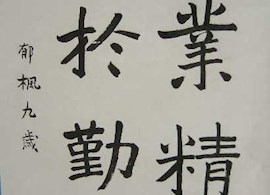 業精
於勤
郁楓九歲